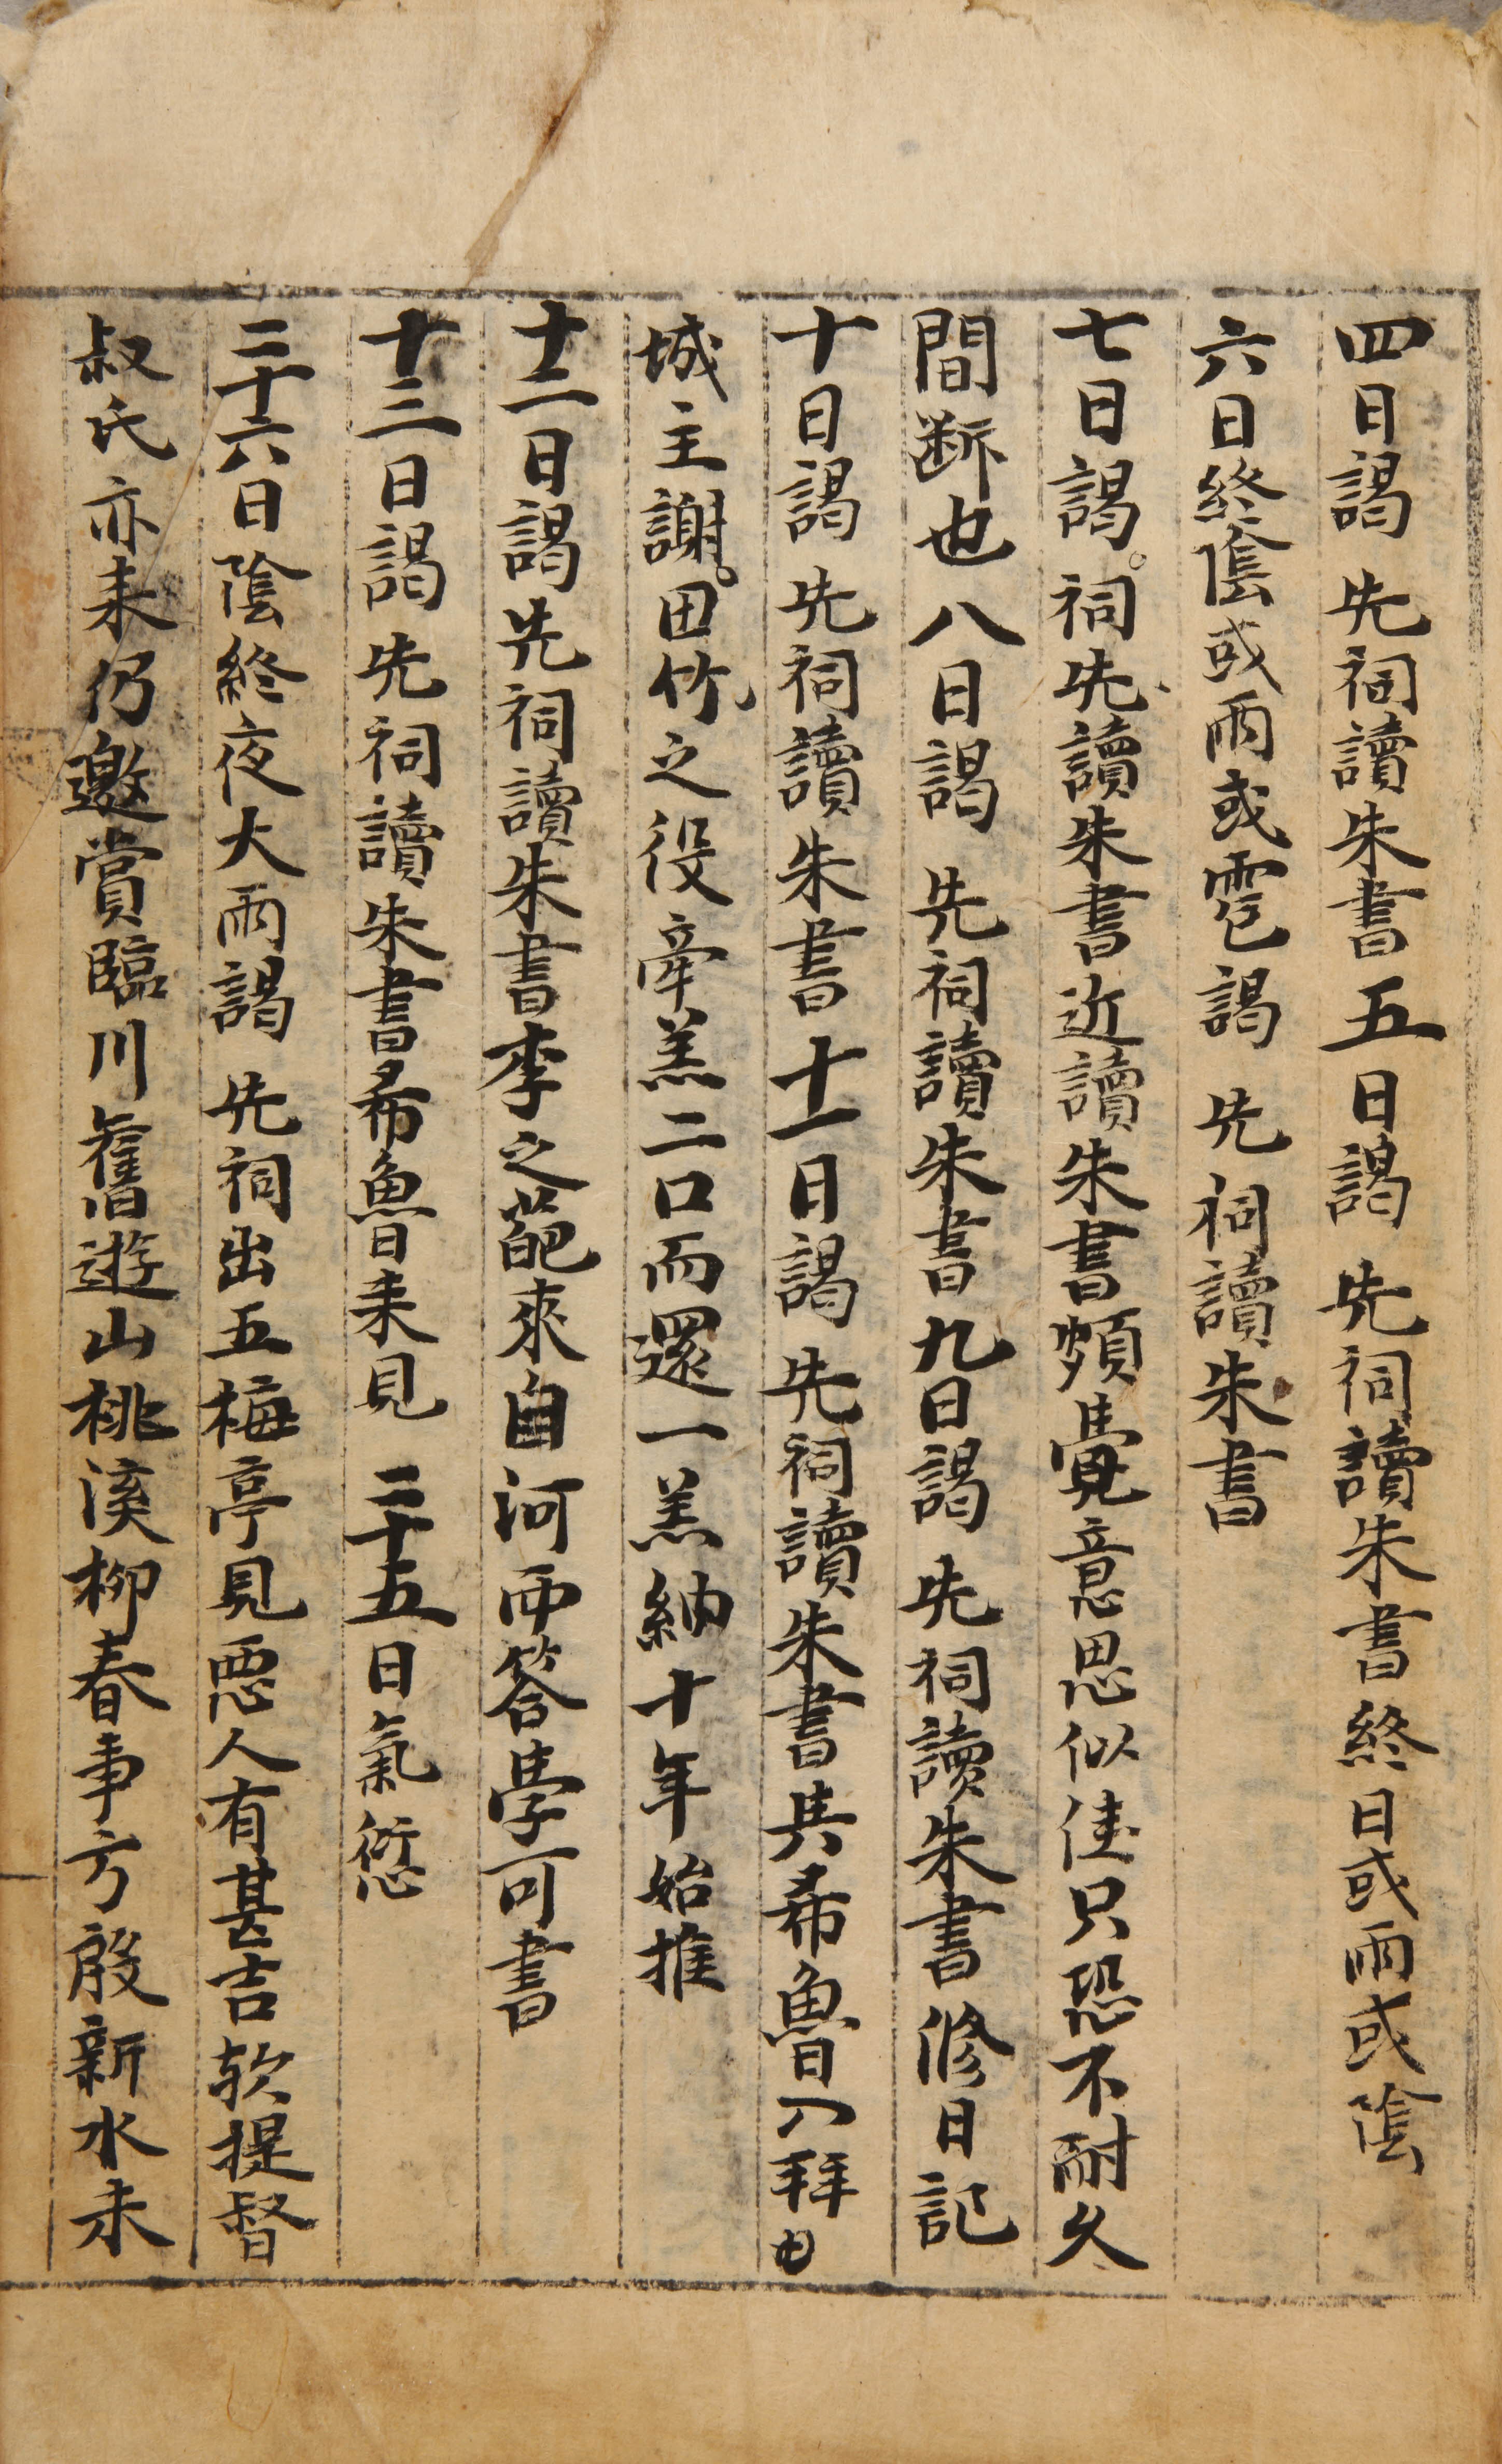 四日謁 先祠讀朱書五日謁 先祠讀朱書終日或雨或陰
六日終陰或雨或雹謁 先祠讀朱書
七日謁祠先讀朱書近讀朱書頗覺意思似佳只恐不耐久
間断也八日謁 先祠讀朱書九日謁 先祠讀朱書修日記
十日謁 先祠讀朱書十一日謁 先祠讀朱書共希魯入拜
城主謝田竹之役牽羔二口而還一羔納十年始推
十二日謁先祠讀朱書李之葩來自河西答學可書
十三日謁先祠讀朱書希魯来見 二十五日氣愆
二十六日陰終夜大雨謁 先祠出五梅亭見悪人有甚吉软提督
叔氏亦来仍邀賞臨川舊遊山桃溪柳春事方殷新水未